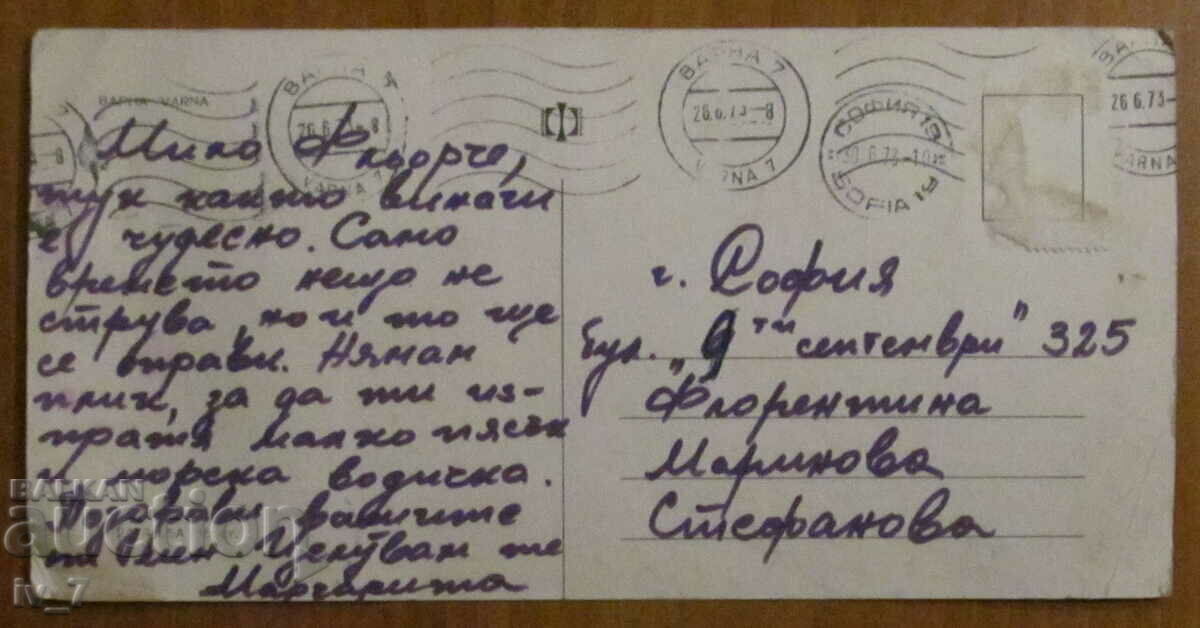 ВАРНА - VARNA
ВАРНА
26.6.73 - 8
VARNA
ВАРНА 7
26.6.73 - 8
VARNA 7
СОФИЯ
30.6.73-10
SOFIA
ВАРНА
26.6.73-
VARNA
Мила Флорче,
тук както винаги
е чудесно. Само
времето нещо не
струва, но и то ще
се оправи. Нямам
плик, за да ти из-
пратя малко пясък
и морска водичка.
Поздрави вашите
Целувам те
Маргарита
г. София
бул. "9ти септември" 325
Флорентина
Маринова
Стефанова
БАЛКАН
auction
iv_7